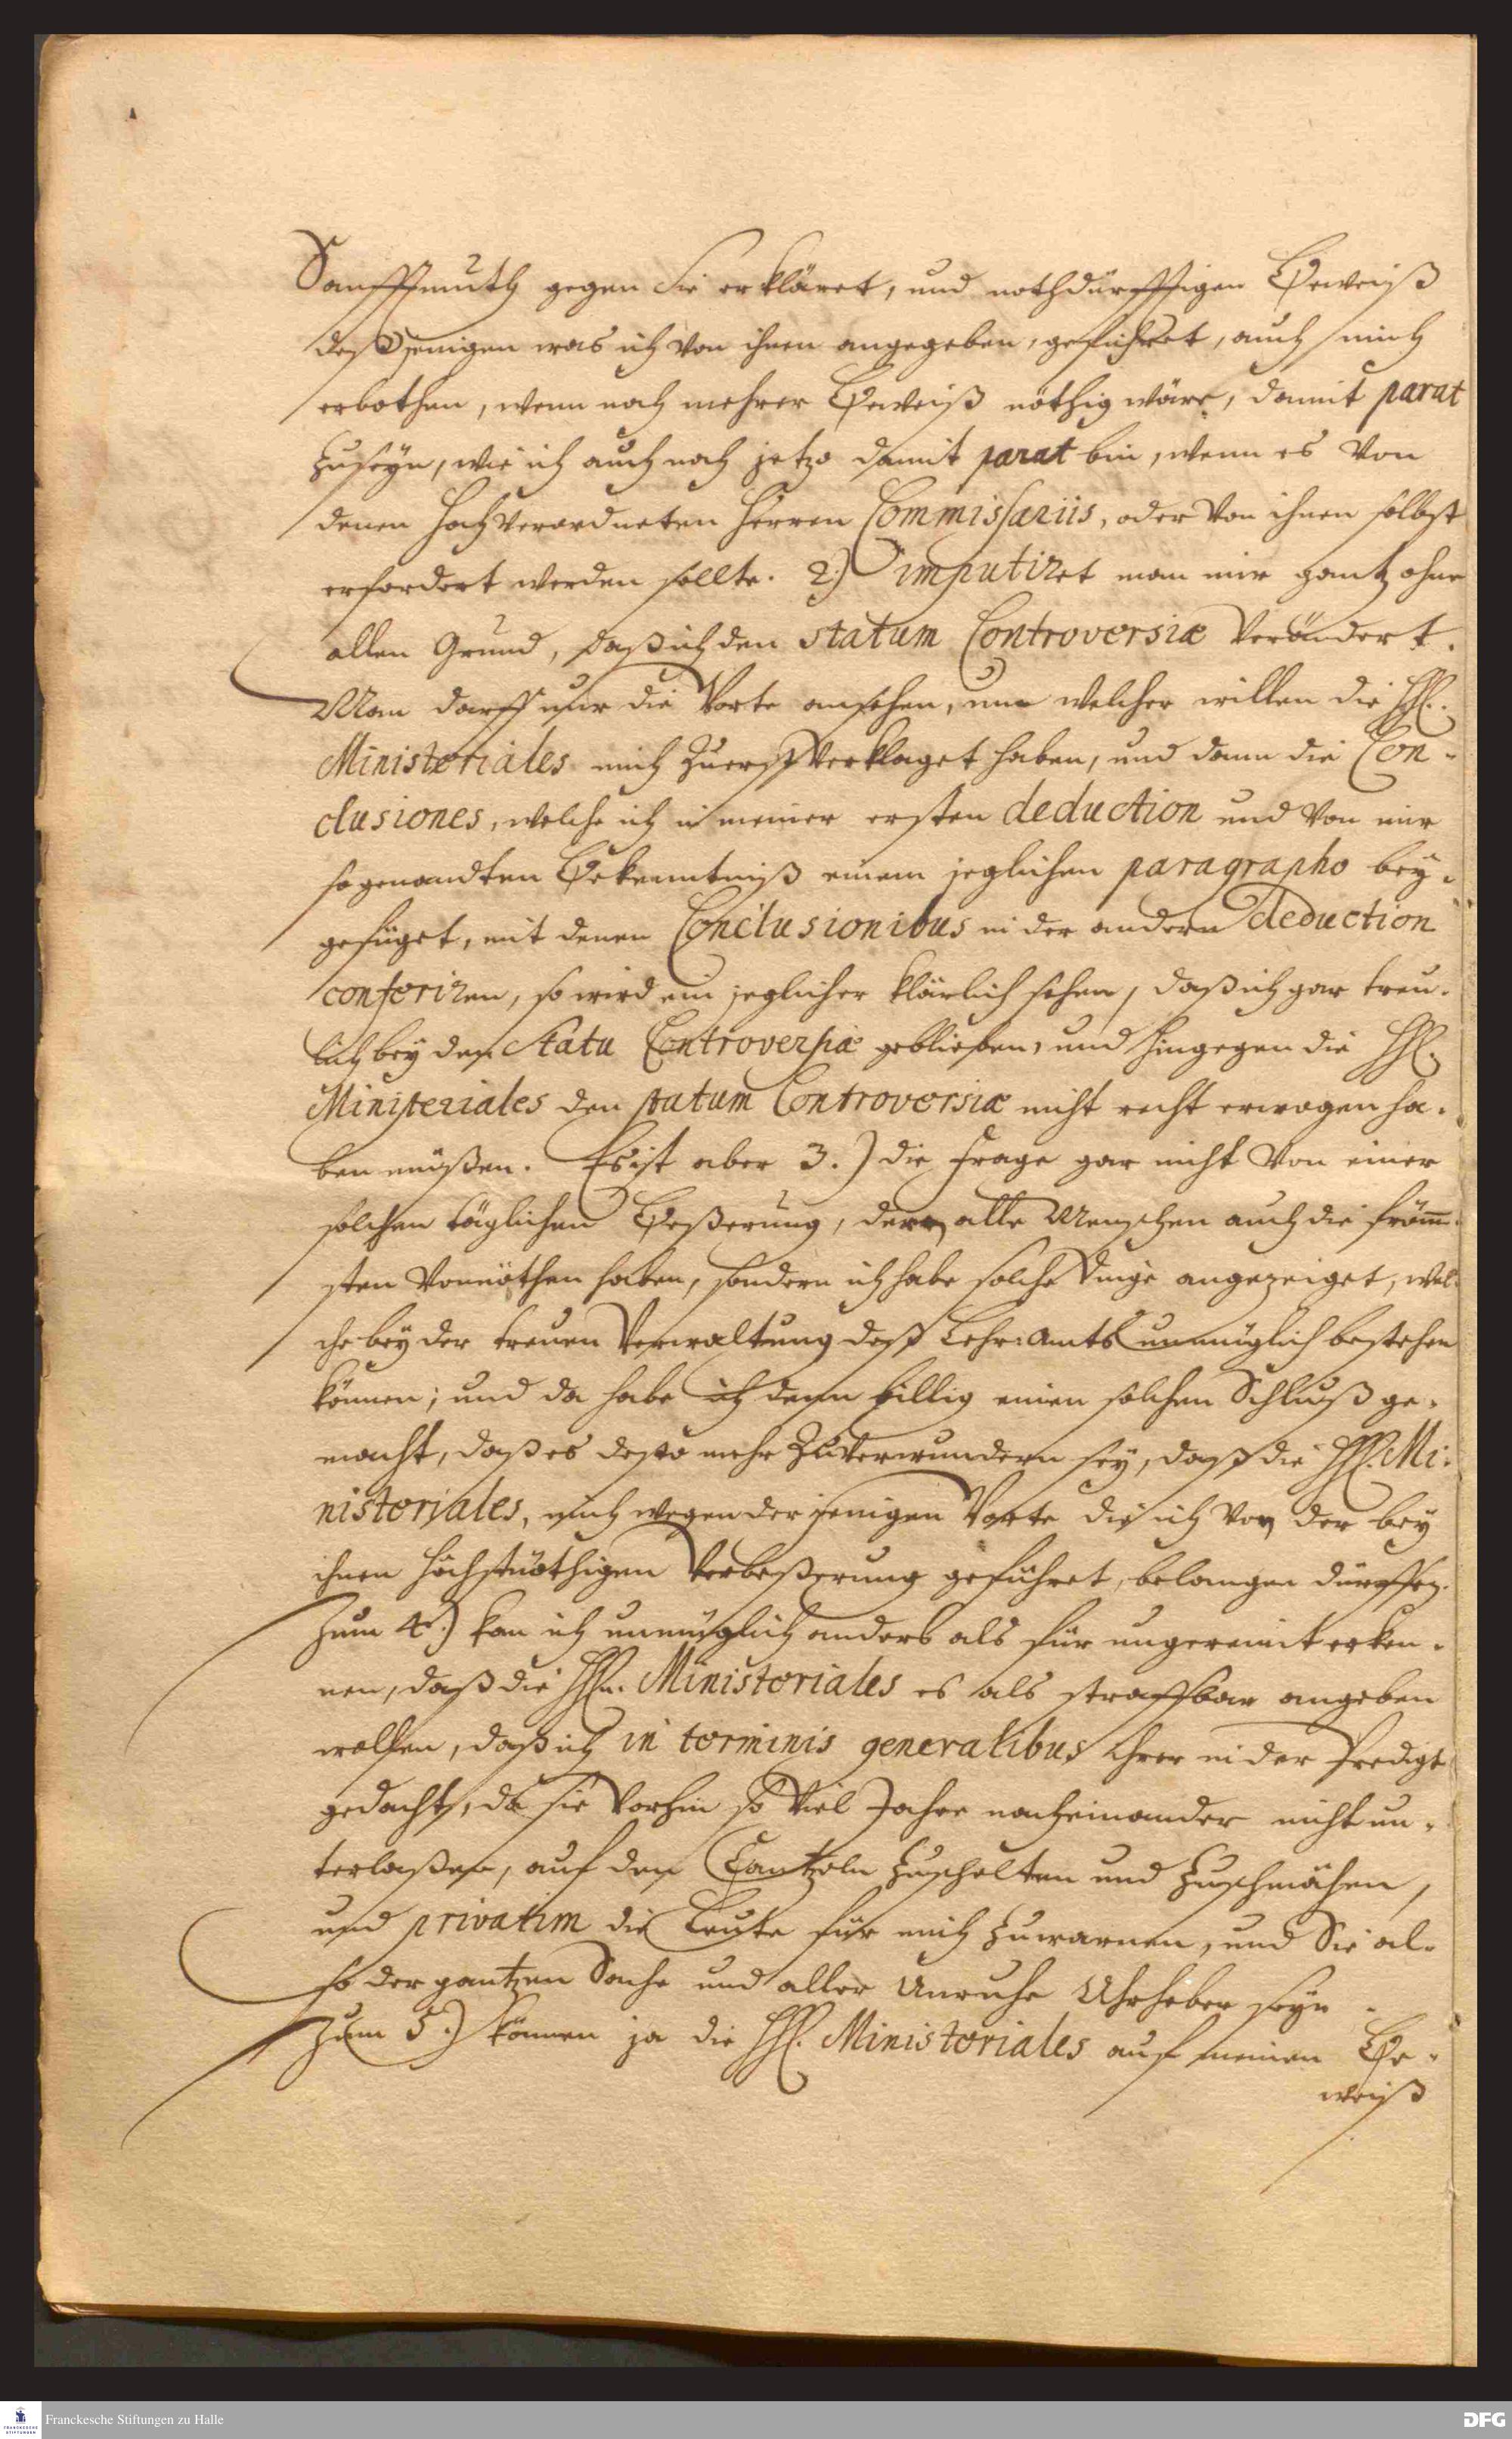 Sanfftmuth gegen Sie erkläret, und nothdürfftigen Beweiß
deßjenigen was ich von ihnen angegeben, geführet, auch mich
erbothen, wenn noch mehrer Beweiß nöthig wäre, damit parat
zuseyn, wie ich auch noch jetzo damit parat bin, wenn es von
denen hochverordneten Herren Commissariis, oder von ihnen selbst
erfordert werden sollte. 2.) imputiret man mir gantz ohne
allen Grund, daß ich den statum Controversiæ verändert.
Man darff nur die Worte ansehen, um welcher willen die HH.
Ministeriales mich zuerst verklaget haben, und dann die Con-
clusiones, welche ich in meiner ersten deduction und von mir
sogenandten Bekenntniß einem jeglichen paragrapho bey-
gefüget, mit denen Conclusionibus in der andern deduction
conferiren, so wird ein jeglicher klärlich sehen, daß ich gar treu-
lich bey dem Statu Controversiæ geblieben, und hingegen die HH.
Ministeriales den statum Controversiæ nicht recht erwogen ha-
ben müßen. Es ist aber 3.) die Frage gar nicht von einer
solchen täglichen Beßerung, deren alle Menschen auch die fröm̄-
sten vonnöthen haben, sondern ich habe solche Dinge angezeiget, wel-
che bey der treuen Verwaltung deß Lehr-Amts unmüglich bestehen
können; und da habe ich denn billig einen solchen Schluß ge-
macht, daß es desto mehr zuverwundern sey, daß die HH. Mi-
nisteriales, mich wegen derjenigen Worte die ich von der bey
ihnen höchstnöthigen Verbeßerung geführet, belangen dürffen.
Zum 4.) kan ich unmüglich anders als für ungereimt erken-
nen, daß die HHn. Ministeriales es als straffbar angeben
wollen, daß ich in terminis generalibus ihrer in der Predigt
gedacht, da sie vorhin so viel Jahre nacheinander nicht un-
terlaßen, auf den Cantzeln zuschelten und zuschmähen,
und privatim die Leute für mich zuwarnen, und Sie al-
so der gantzen Sache und aller Unruhe Uhrheber seyn.
Zum 5.) können ja die HH. Ministeriales auf meinen Be-
weiß
Franckesche Stiftungen zu Halle
FRANCKESCHE
STIFTUNGEN
DFG